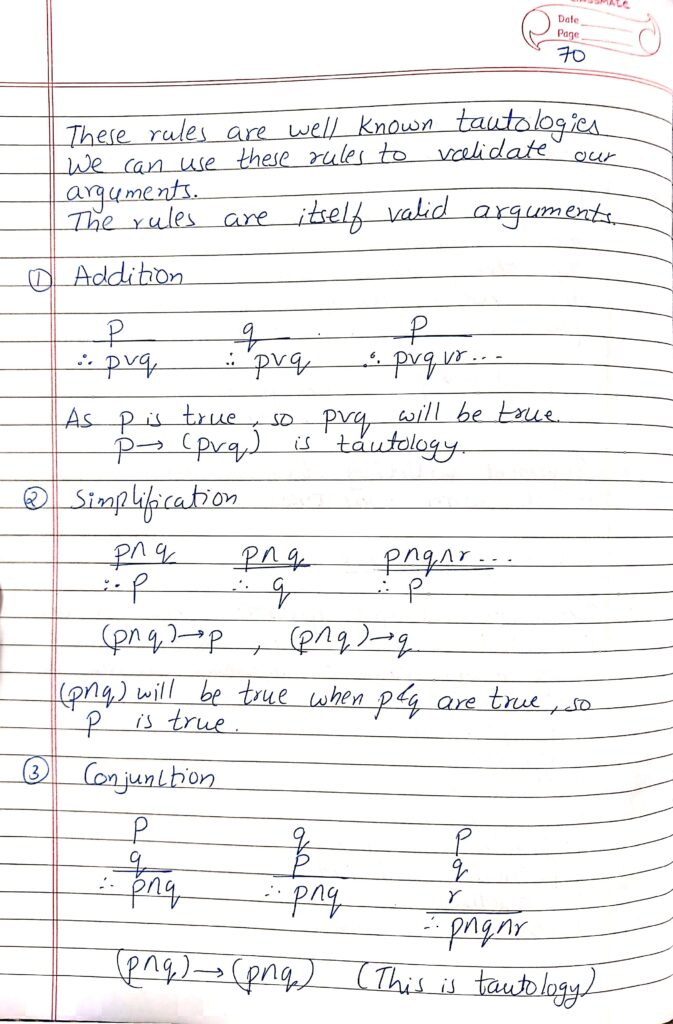 CLASSMATE
Date
Page
70
These rules are well known tautologies
We can use these rules to validate our
arguments.
The rules are itself valid arguments.
① Addition
p q p
∴ p∨q ∴ p∨q ∴ p∨q∨r...
As p is true, so p∨q will be true.
p → (p∨q) is tautology.
② Simplification
p∧q p∧q p∧q∧r...
∴ p ∴ q ∴ p
(p∧q)→p , (p∧q)→q
(p∧q) will be true when p & q are true, so
p is true.
③ Conjunction
p q p
q p q
∴ p∧q ∴ p∧q r
∴ p∧q∧r
(p∧q)→(p∧q) (This is tautology)